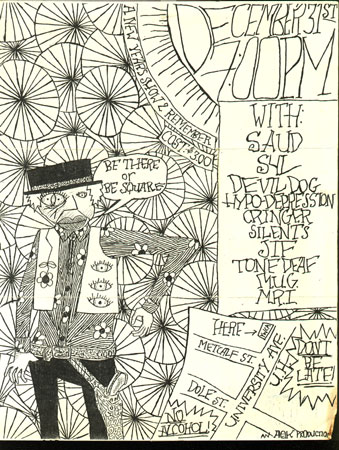 DECEMBER 31ST
7:00PM
A NEW YEARS SHOW 2 REMEMBER
COST $3.00
BE THERE
OR
BE SQUARE
WITH:
SAUD
S4L
DEVIL DOG
HYPO-DEPRESSION
CRINGER
SILENTS
JIF
TONE DEAF
M.U.G.
M.R.I.
HERE →
METCALF ST.
DOLE ST.
UNIVERSITY AVE
U.H.
DON'T
BE
LATE!
NO
ALCOHOL!
AN
PRODUCTION